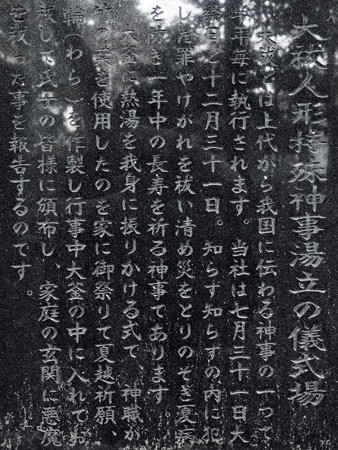 大祓人形持祓神事湯立の儀式場
大祓とは上代から我国に伝わる神事の一つで
半年毎に執行されます。当社は七月三十一日大
祭日と十二月三十一日。知らず知らずの内に犯
した罪やけがれを祓い清め災をとりのぞき夏病
を防ぎ一年中の長寿を祈る神事であります。
大釜に熱湯を我身に振りかける式で 神職が
の葉を使用したのを家に御祭りて夏越祈願、
輪(わら)を作製し行事中大釜の中に入れてお
祓して氏子の皆様に頒布し、家庭の玄関に悪魔
を祓った事を報告するのです。